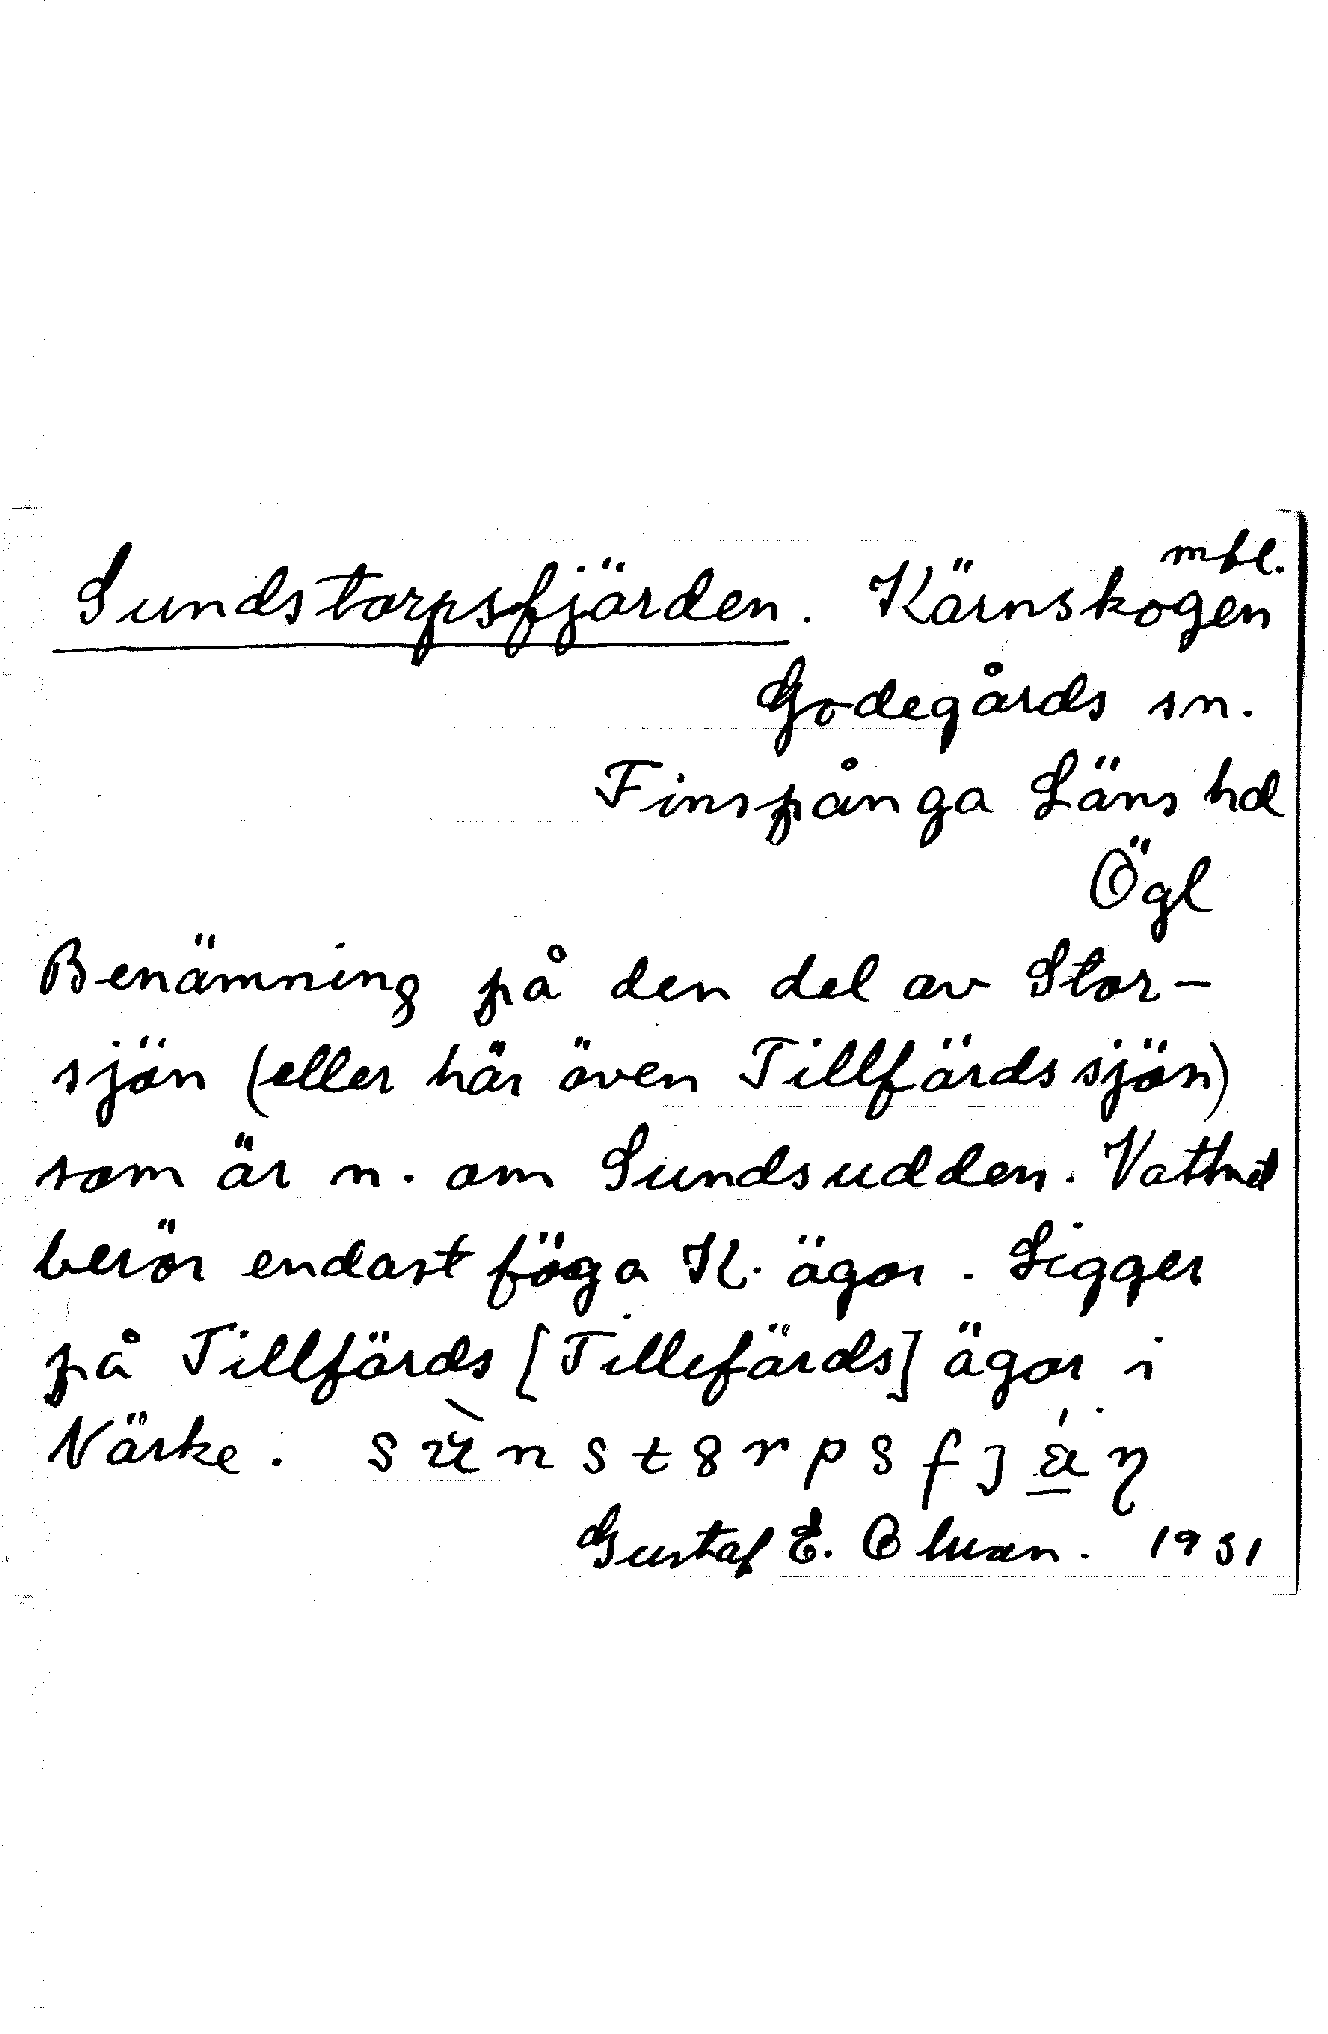 Sundstorpsfjärden. Kärnskogen mbl.
Godegårds sn.
Finspånga Läns hd
Ögl
Benämning på den del av Stor-
sjön (eller här även Tillfärdssjön)
som är n. om Sundsudden. Vattnet
berör endast föga K. ägor. Ligger
på Tillfärds [Tillefärds] ägor i
Närke.
Gustaf E. 1931